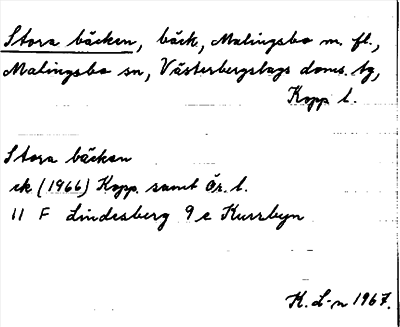 Stora bäcken, bäck, Malingsbo m. fl.,
Malingsbo sn, Västerbergslags doms. tg,
Kopp l.
Stora bäcken
ek (1966) Kopp. samt Ör. l.
11 F Lindesberg 9 e Kursbyn
K. L-n 1967.